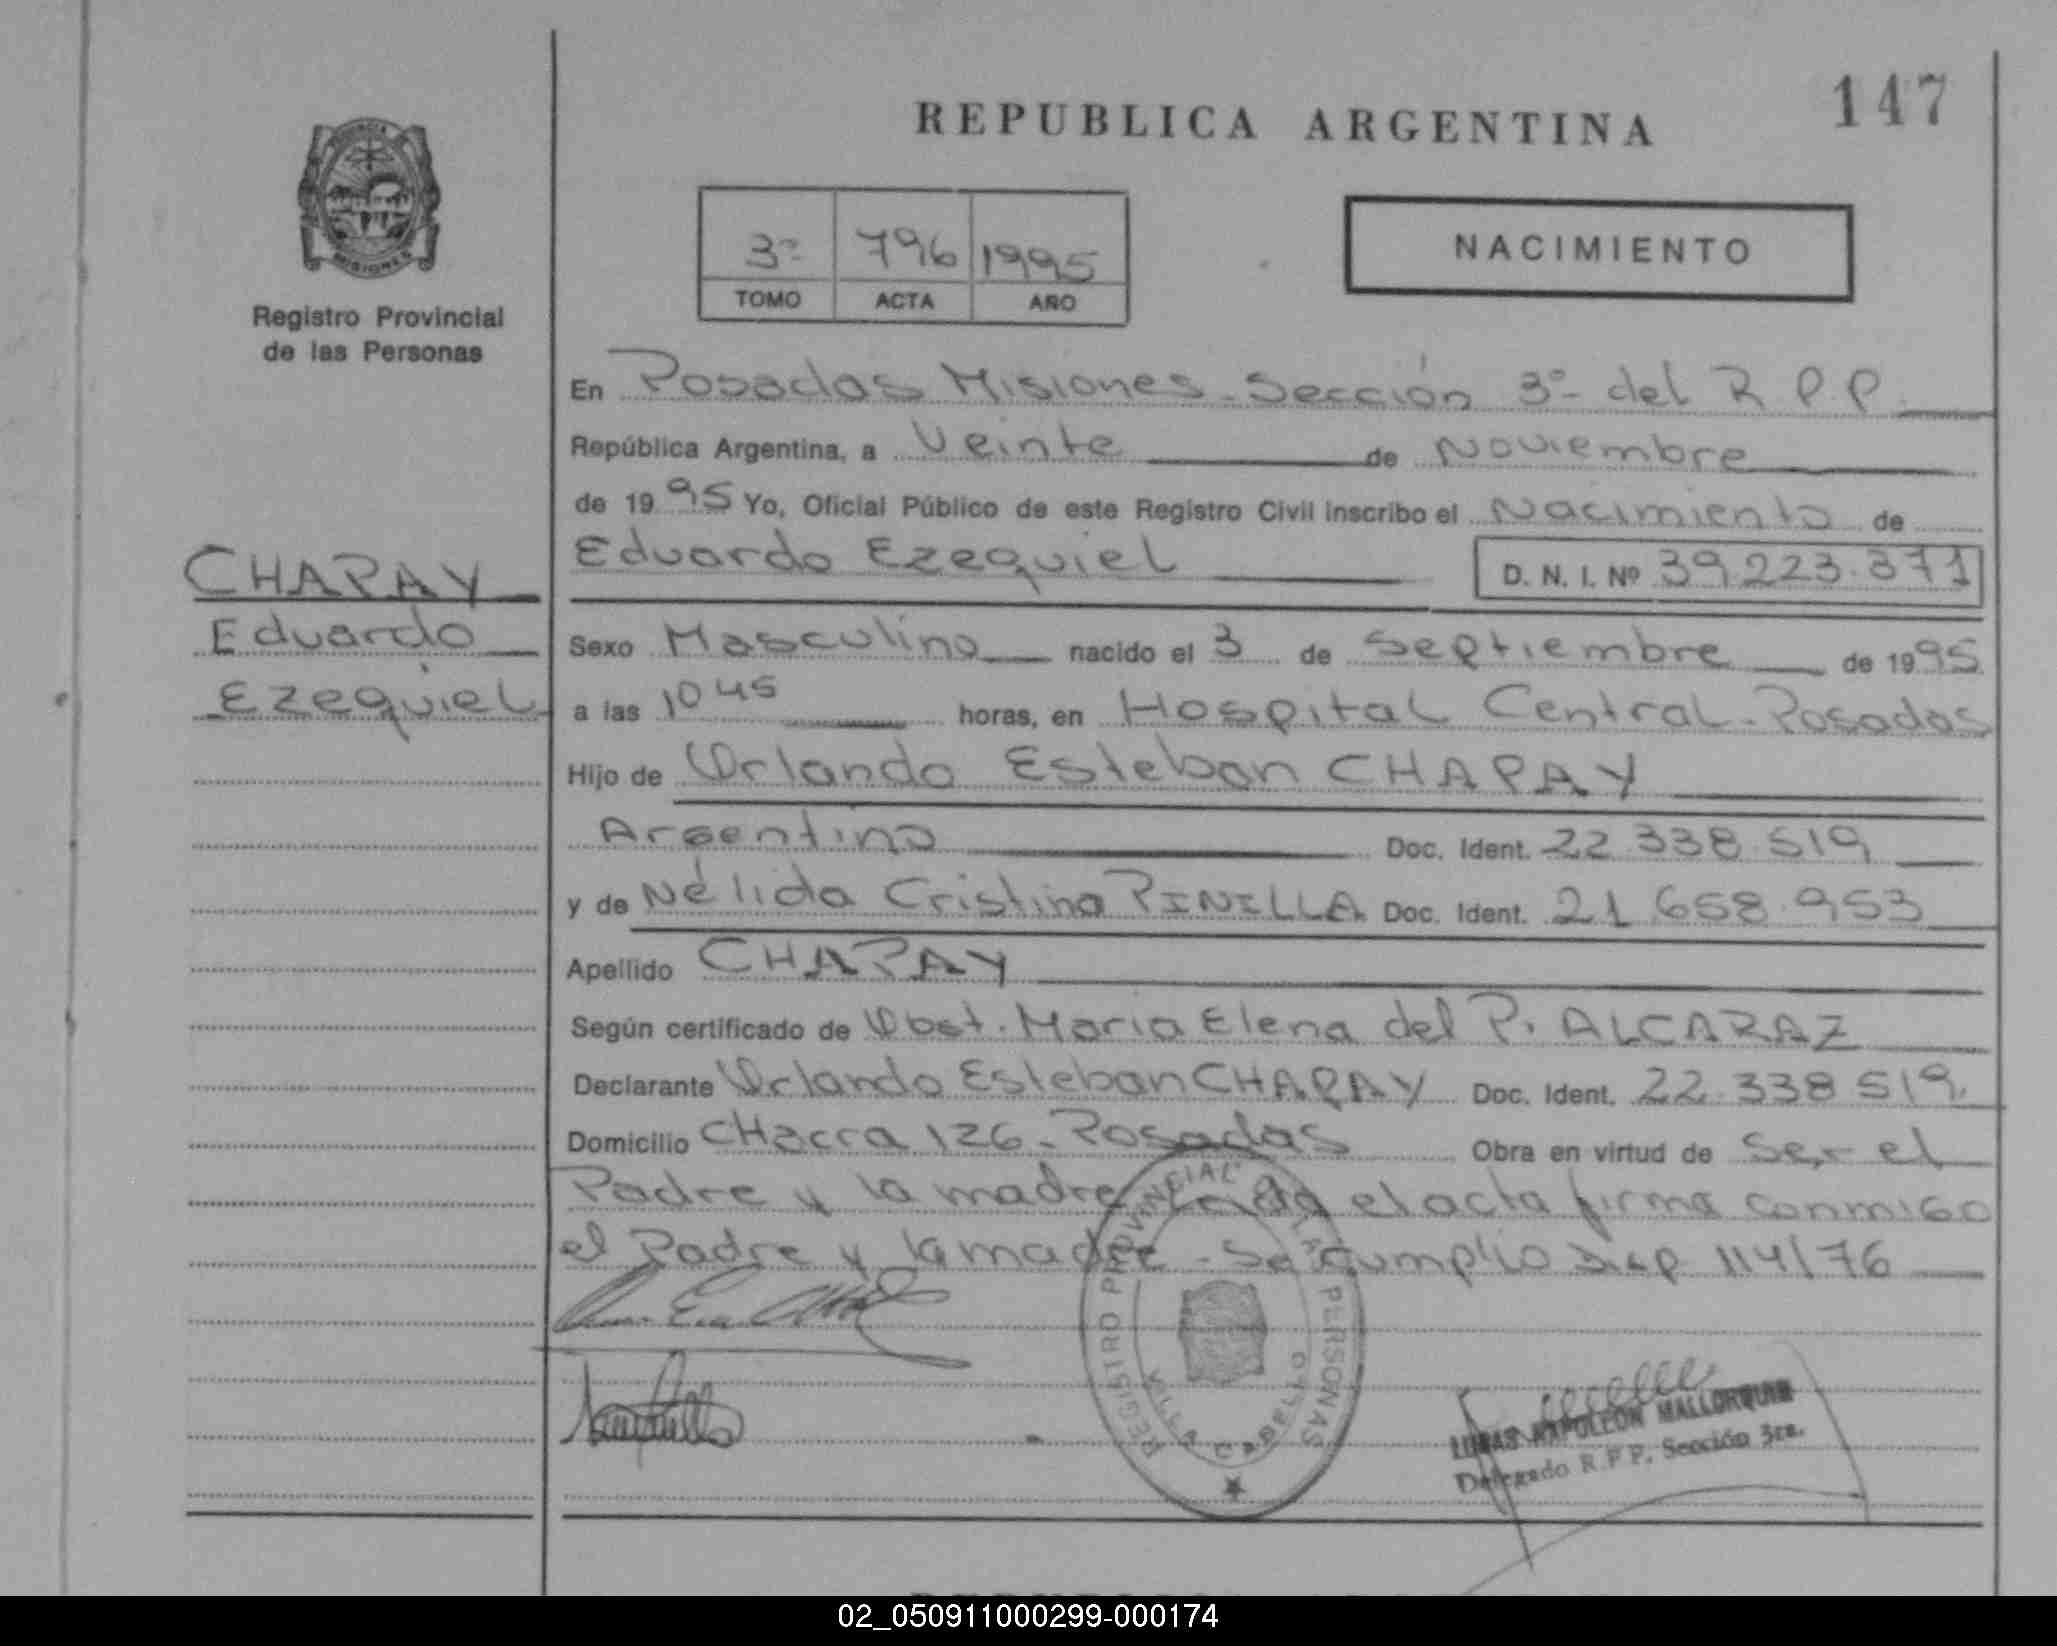 REPUBLICA ARGENTINA
147
PROVINCIA
MISIONES
Registro Provincial
de las Personas
3º 796 1995
TOMO ACTA AÑO
NACIMIENTO
En Posadas Misiones - Sección 3º- del R.P.P.
República Argentina, a Veinte de Noviembre
de 1995 Yo, Oficial Público de este Registro Civil inscribo el Nacimiento de
Eduardo Ezequiel D. N. I. Nº 39.223.371
CHAPAY
Eduardo
Ezequiel
Sexo Masculino nacido el 3 de Septiembre de 1995
a las 10 45 horas, en Hospital Central - Posadas
Hijo de Orlando Esteban CHAPAY
Argentino Doc. Ident. 22.338.519
y de Nélida Cristina PINILLA Doc. Ident. 21.658.953
Apellido CHAPAY
Según certificado de Obst. Maria Elena del P. ALCARAZ
Declarante Orlando Esteban CHAPAY Doc. Ident. 22.338.519.
Domicilio CHacra 126 - Posadas Obra en virtud de Ser el
Padre y la madre Leida el acta firma conmigo
el Padre y la madre - Se cumplio Disp 114/76
REGISTRO PROVINCIAL DE LAS PERSONAS
VILLA CABELLO
LUCAS NAPOLEON MALLORQUIN
Delegado R.P.P. Sección 3ra.
02_050911000299-000174